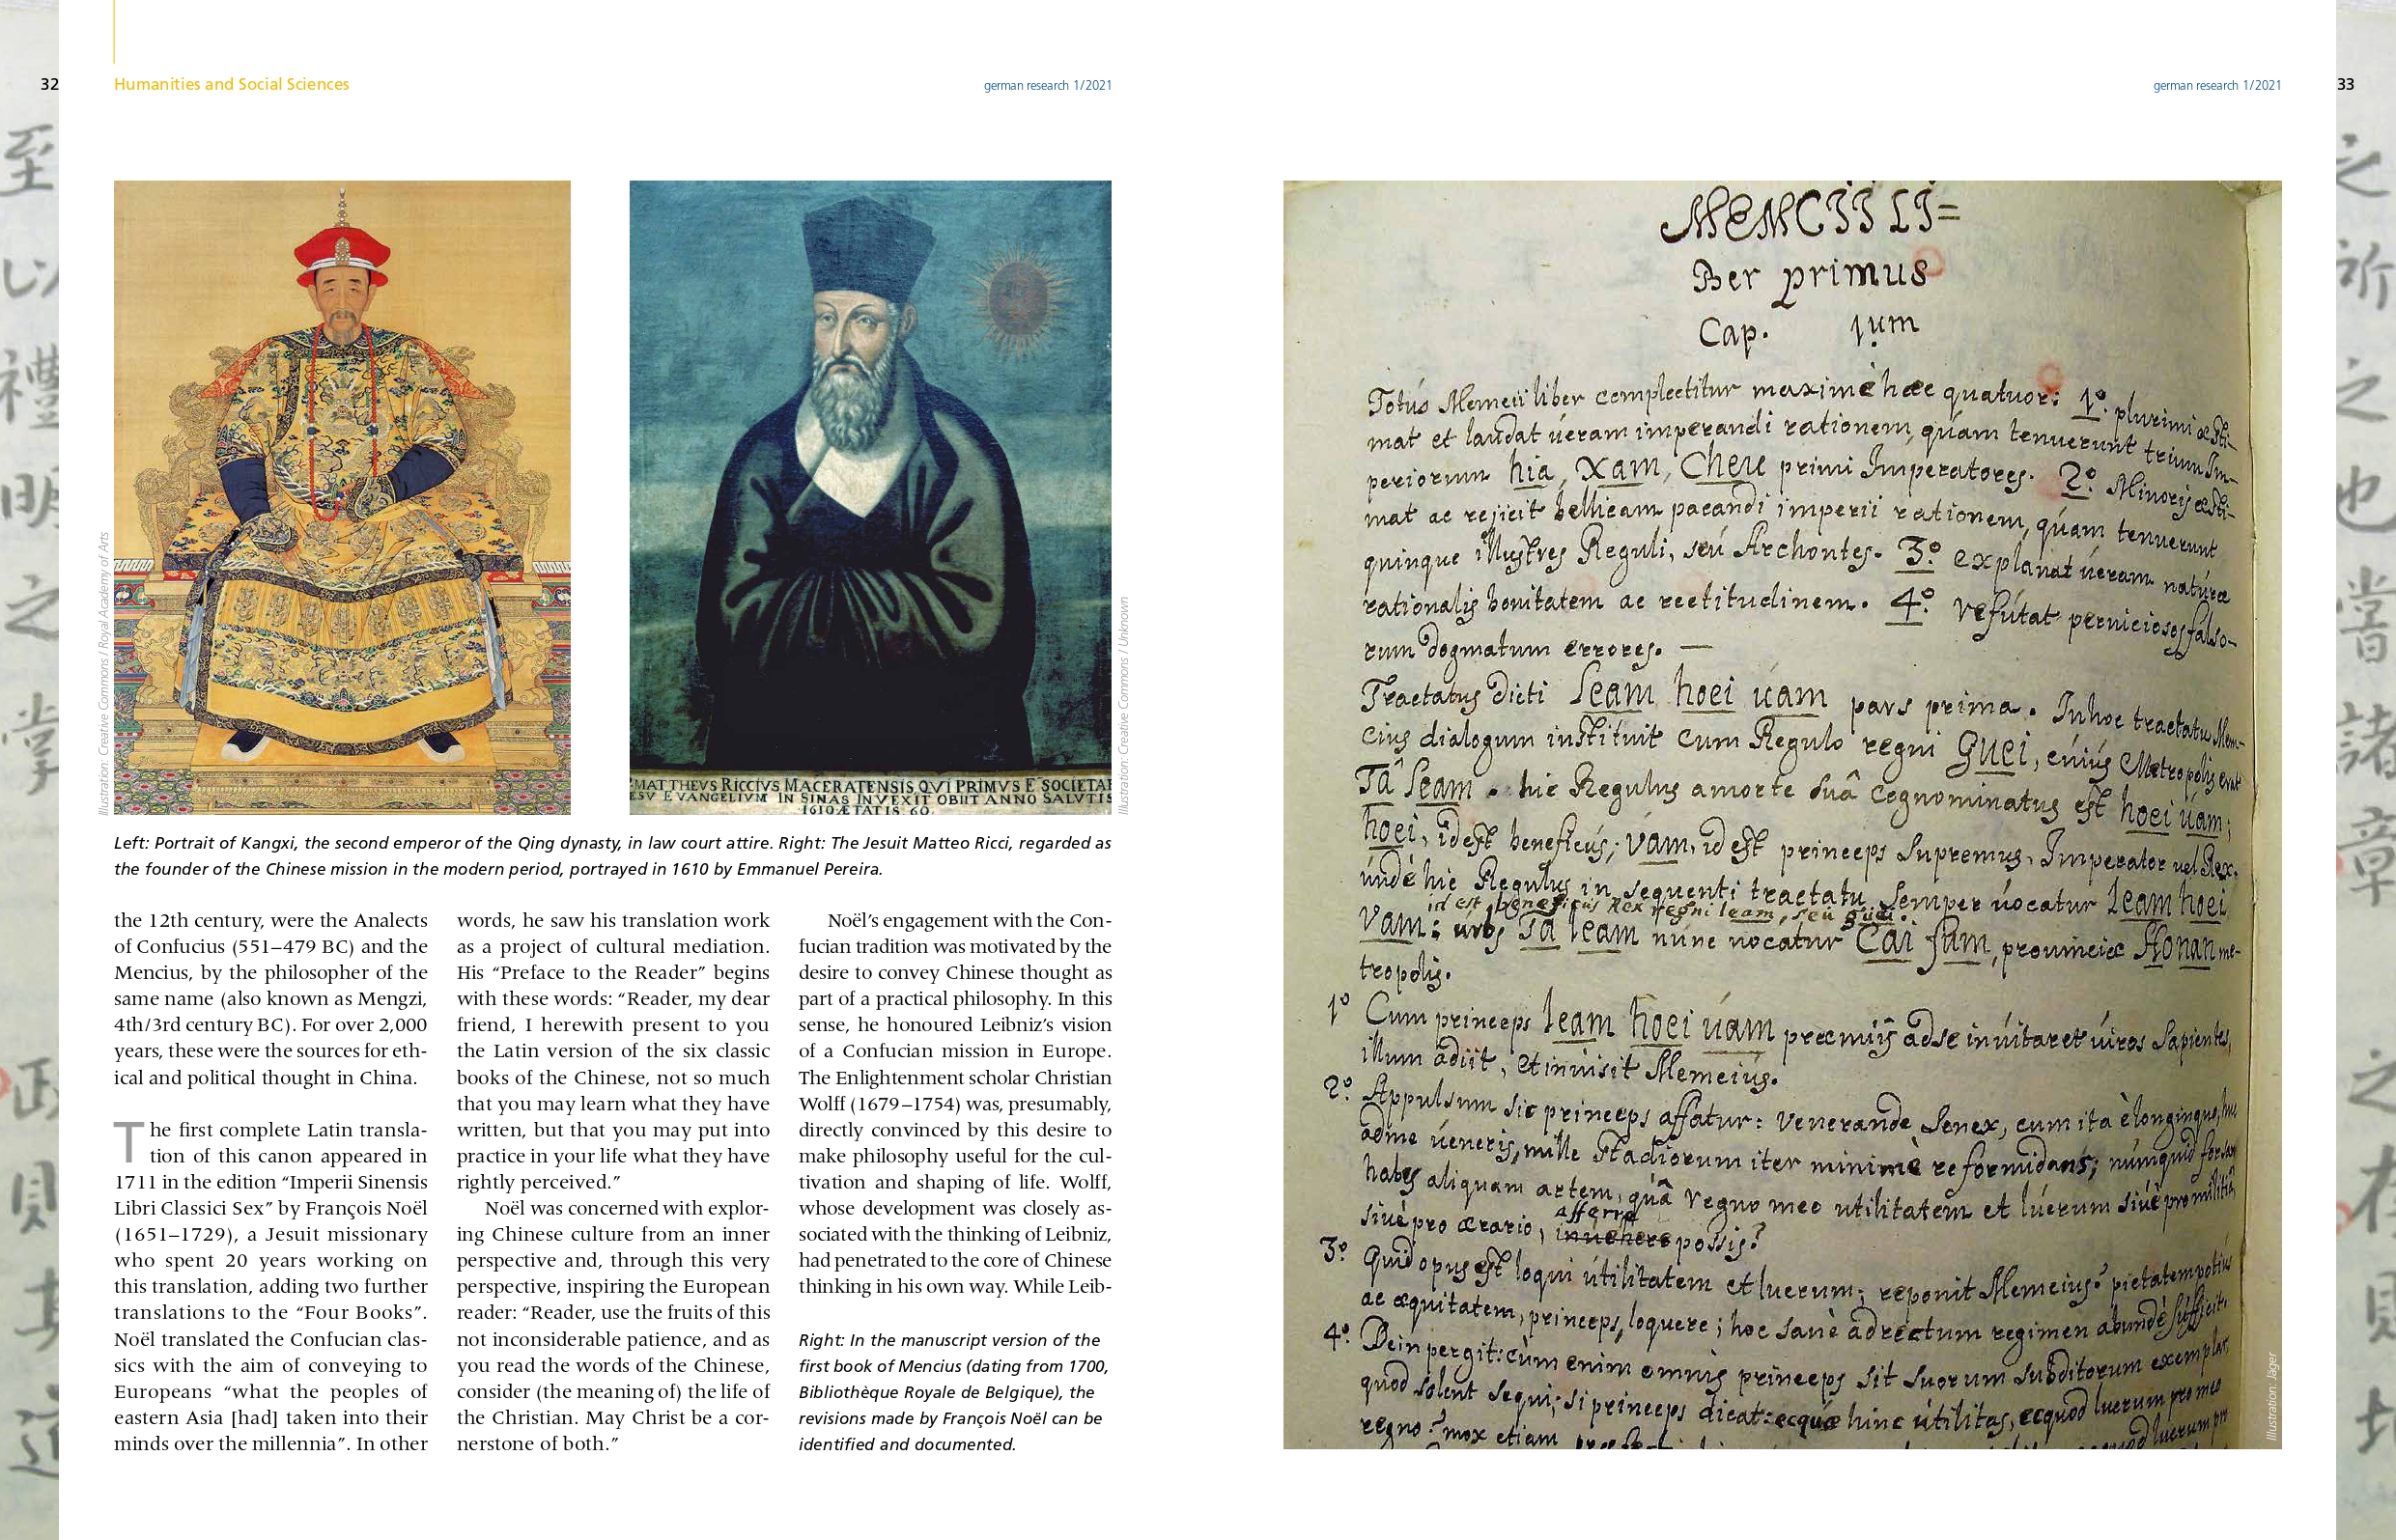 32
Humanities and Social Sciences
german research 1/2021
Illustration: Creative Commons / Royal Academy of Arts
MATTHEVS RICCIVS MACERATENSIS QVI PRIMVS E SOCIETAE
ESV EVANGELIVM IN SINAS INVEXIT OBIIT ANNO SALVTIS
1610 ÆTATIS 60
Illustration: Creative Commons / Unknown
Left: Portrait of Kangxi, the second emperor of the Qing dynasty, in law court attire. Right: The Jesuit Matteo Ricci, regarded as
the founder of the Chinese mission in the modern period, portrayed in 1610 by Emmanuel Pereira.
the 12th century, were the Analects
of Confucius (551–479 BC) and the
Mencius, by the philosopher of the
same name (also known as Mengzi,
4th/3rd century BC). For over 2,000
years, these were the sources for eth-
ical and political thought in China.
The first complete Latin transla-
tion of this canon appeared in
1711 in the edition “Imperii Sinensis
Libri Classici Sex” by François Noël
(1651–1729), a Jesuit missionary
who spent 20 years working on
this translation, adding two further
translations to the “Four Books”.
Noël translated the Confucian clas-
sics with the aim of conveying to
Europeans “what the peoples of
eastern Asia [had] taken into their
minds over the millennia”. In other
words, he saw his translation work
as a project of cultural mediation.
His “Preface to the Reader” begins
with these words: “Reader, my dear
friend, I herewith present to you
the Latin version of the six classic
books of the Chinese, not so much
that you may learn what they have
written, but that you may put into
practice in your life what they have
rightly perceived.”
Noël was concerned with explor-
ing Chinese culture from an inner
perspective and, through this very
perspective, inspiring the European
reader: “Reader, use the fruits of this
not inconsiderable patience, and as
you read the words of the Chinese,
consider (the meaning of) the life of
the Christian. May Christ be a cor-
nerstone of both.”
Noël’s engagement with the Con-
fucian tradition was motivated by the
desire to convey Chinese thought as
part of a practical philosophy. In this
sense, he honoured Leibniz’s vision
of a Confucian mission in Europe.
The Enlightenment scholar Christian
Wolff (1679–1754) was, presumably,
directly convinced by this desire to
make philosophy useful for the cul-
tivation and shaping of life. Wolff,
whose development was closely as-
sociated with the thinking of Leibniz,
had penetrated to the core of Chinese
thinking in his own way. While Leib-
Right: In the manuscript version of the
first book of Mencius (dating from 1700,
Bibliothèque Royale de Belgique), the
revisions made by François Noël can be
identified and documented.
german research 1/2021
33
MEMCII LI=
Ber primus
Cap. 1um
Totús Memcii liber complectitur maximè hæc quatuor: 1º plurimi æsti-
mat et laudat úeram imperandi rationem, quam tenuerunt trium Im-
periorum hia, Xam, Cheu primi Imperatores. 2º Minoris æsti-
mat ac rejicit bellicam pacandi imperii rationem, quam tenuerunt
quinque illustres Reguli, seú Archontes. 3º explanat úeram natúræ
rationalis bonitatem ac rectitudinem. 4º refútat perniciosos falso-
rum dogmatum errores.
Tractatus dicti Leam hoei úam pars prima. In hoc tractatu Mem-
cius dialogum instituit cum Regulo regni Guei, cúiús Metropolis erat
Tá Leam. hic Regulus a morte suâ cognominatus est hoei úam;
hoei, id est beneficús; vam, id est princeps Supremus, Imperator vel Rex.
úndè hic Regulus in sequenti tractatu semper úocatur Leam hoei
id est beneficus Rex regni leam, seu guei.
vam: urbs Tá leam nunc uocatur Cai fum, prouinciæ Honan me-
tropolis.
1º Cum princeps leam hoei úam præmiis ad se inúitaret úiros Sapientes,
illum adiit, et inuisit Memcius.
2º Appulsum sic princeps affatur: venerande Senex, cum ita è longinquo huc
ad me úeneris, mille stadiorum iter minimè reformidans; númquid forsan
habes aliquam artem, quâ regno meo utilitatem et lúcrum siúè pro militiâ,
afferre
siuè pro ærario, inuehere possis?
3º Quid opus est loqui útilitatem et lucrum; reponit Memcius? pietatem potiús
ac æquitatem, princeps, loquere; hoc sanè ad rectum regimen abundè sufficit.
4º Dein pergit: cùm enim omnis princeps sit suorum subditorum exemplar,
quod solent sequi; si princeps dicat: ecquæ hinc útilitas, ecquod lucrum pro meo
regno? mox etiam
Illustration: Jäger
至
以
禮
明
之
掌
政
則
其
道
之
祈
之
也
嘗
諸
章
之
在
則
地